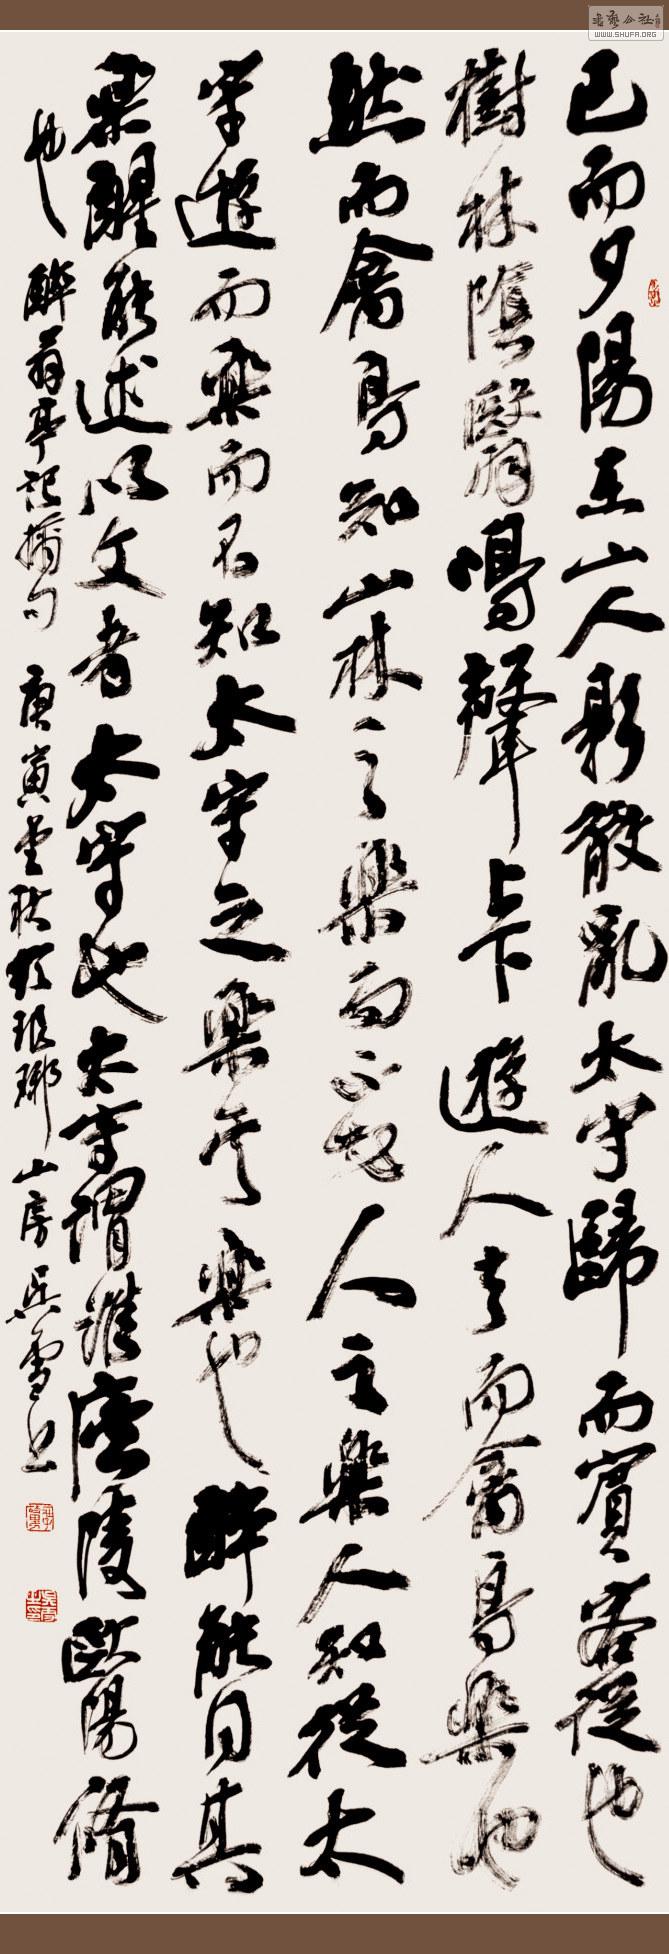 已而夕陽在山人影散亂太守歸而賓客從也
樹林陰翳鳴聲上下遊人去而禽鳥樂也
然而禽鳥知山林之樂而不知人之樂人知從太
守遊而樂而不知太守之樂其樂也醉能同其
樂醒能述以文者太守也太守謂誰廬陵歐陽脩
也 醉翁亭記摘句 庚寅孟秋於琅琊山房吳雪書
書藝公社
WWW.SHUFA.ORG